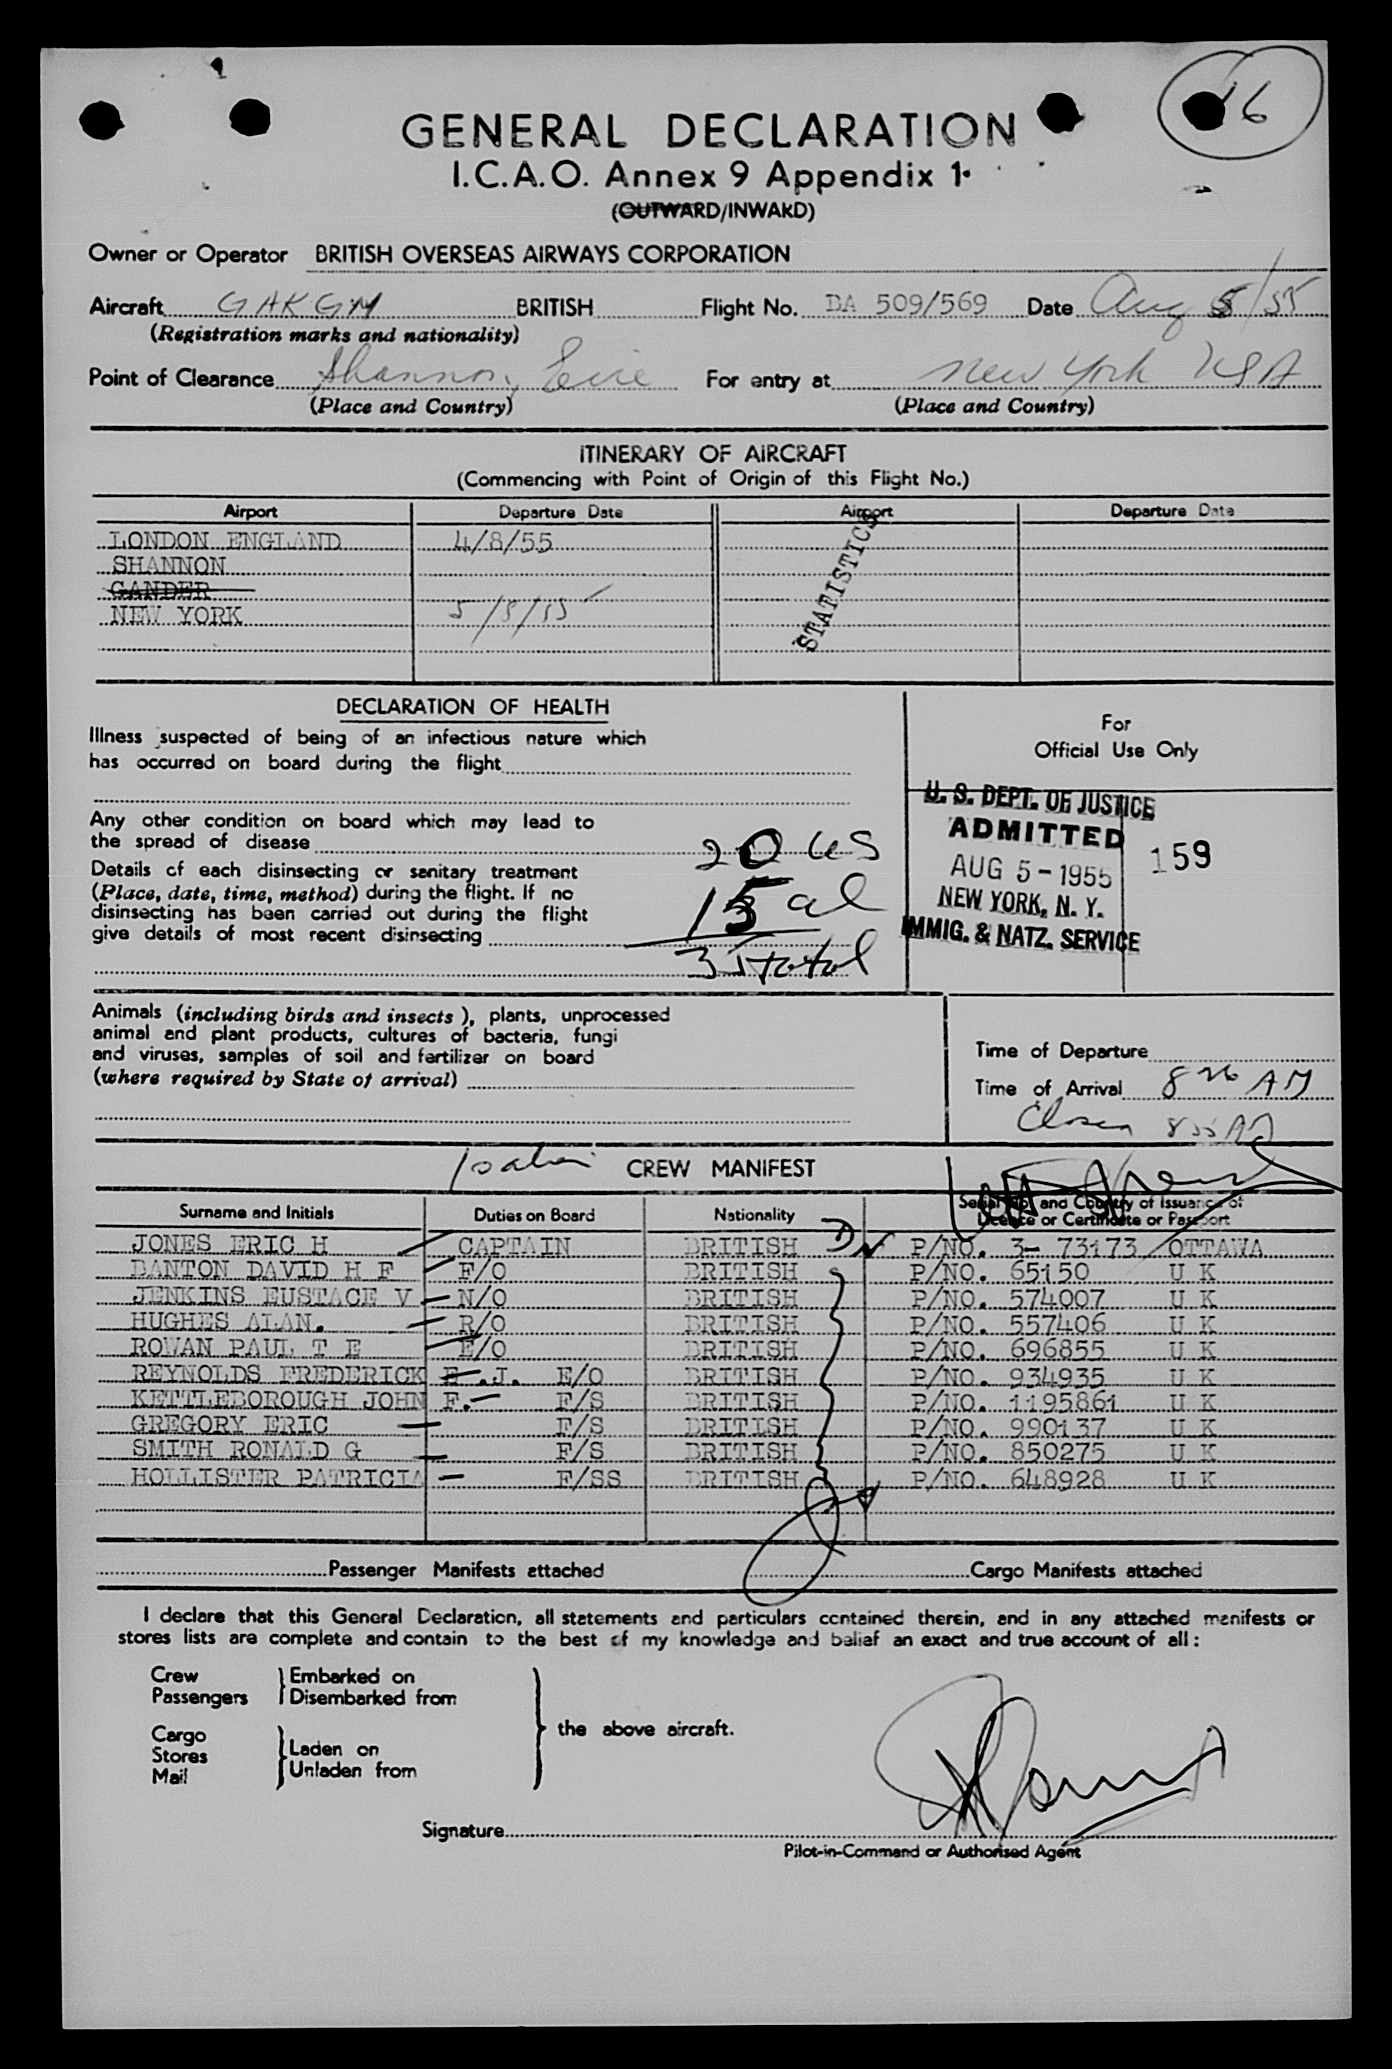 16
GENERAL DECLARATION
I.C.A.O. Annex 9 Appendix 1.
(OUTWARD/INWARD)
Owner or Operator BRITISH OVERSEAS AIRWAYS CORPORATION
Aircraft GAKGM BRITISH Flight No. BA 509/569 Date Aug 5/55
(Registration marks and nationality)
Point of Clearance Shannon, Eire For entry at New York USA
(Place and Country) (Place and Country)
ITINERARY OF AIRCRAFT
(Commencing with Point of Origin of this Flight No.)
Airport Departure Date Airport Departure Date
LONDON ENGLAND 4/8/55
SHANNON
GANDER
NEW YORK 5/8/55
STATISTICS
DECLARATION OF HEALTH
Illness suspected of being of an infectious nature which
has occurred on board during the flight
For
Official Use Only
Any other condition on board which may lead to
the spread of disease
Details of each disinsecting or sanitary treatment
(Place, date, time, method) during the flight. If no
disinsecting has been carried out during the flight
give details of most recent disinsecting
20 US
15 al
35 total
U. S. DEPT. OF JUSTICE
ADMITTED
AUG 5 - 1955 159
NEW YORK, N. Y.
IMMIG. & NATZ. SERVICE
Animals (including birds and insects), plants, unprocessed
animal and plant products, cultures of bacteria, fungi
and viruses, samples of soil and fertilizer on board
(where required by State of arrival)
Time of Departure
Time of Arrival 8 26 AM
855 AM
CREW MANIFEST
Surname and Initials Duties on Board Nationality Serial No. and Country of Issuance of
Licence or Certificate or Passport
JONES ERIC H CAPTAIN BRITISH P/NO. 3- 73173 /OTTAWA
BANTON DAVID H F F/O BRITISH P/NO. 65150 U K
JENKINS EUSTACE V N/O BRITISH P/NO. 574007 U K
HUGHES ALAN. R/O BRITISH P/NO. 557406 U K
ROWAN PAUL T E E/O BRITISH P/NO. 696855 U K
REYNOLDS FREDERICK .J. E/O BRITISH P/NO. 934935 U K
KETTLEBOROUGH JOHN F. F/S BRITISH P/NO. 1195861 U K
GREGORY ERIC F/S BRITISH P/NO. 990137 U K
SMITH RONALD G F/S BRITISH P/NO. 850275 U K
HOLLISTER PATRICIA F/SS BRITISH P/NO. 648928 U K
Passenger Manifests attached Cargo Manifests attached
I declare that this General Declaration, all statements and particulars contained therein, and in any attached manifests or
stores lists are complete and contain to the best of my knowledge and belief an exact and true account of all:
Crew } Embarked on
Passengers } Disembarked from
} the above aircraft.
Cargo
Stores } Laden on
Mail } Unladen from
Signature
Pilot-in-Command or Authorised Agent